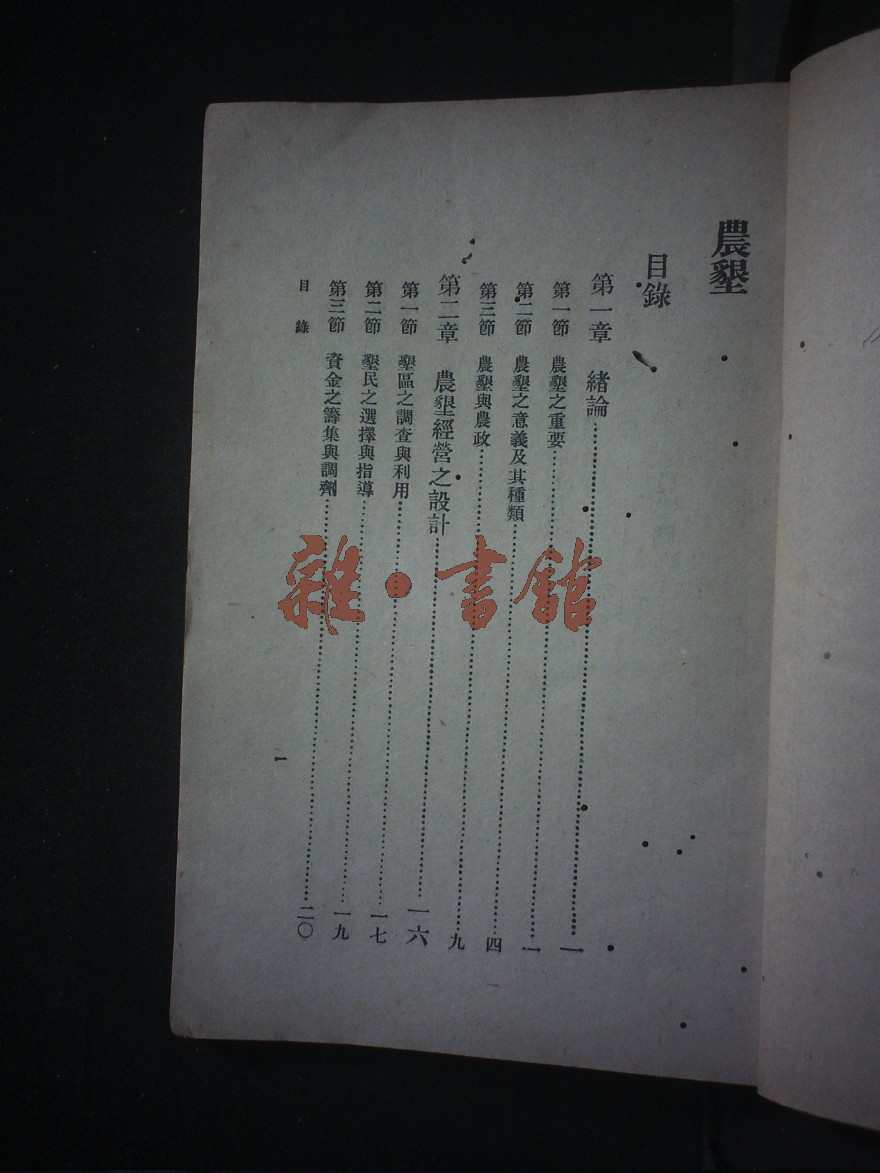 農墾
目錄
第一章 緒論……一
第一節 農墾之重要……一
第二節 農墾之意義及其種類……四
第三節 農墾與農政……九
第二章 農墾經營之設計……一六
第一節 墾區之調查與利用……一七
第二節 墾民之選擇與指導……一九
第三節 資金之籌集與調劑……二〇
目錄
一
雜·書館